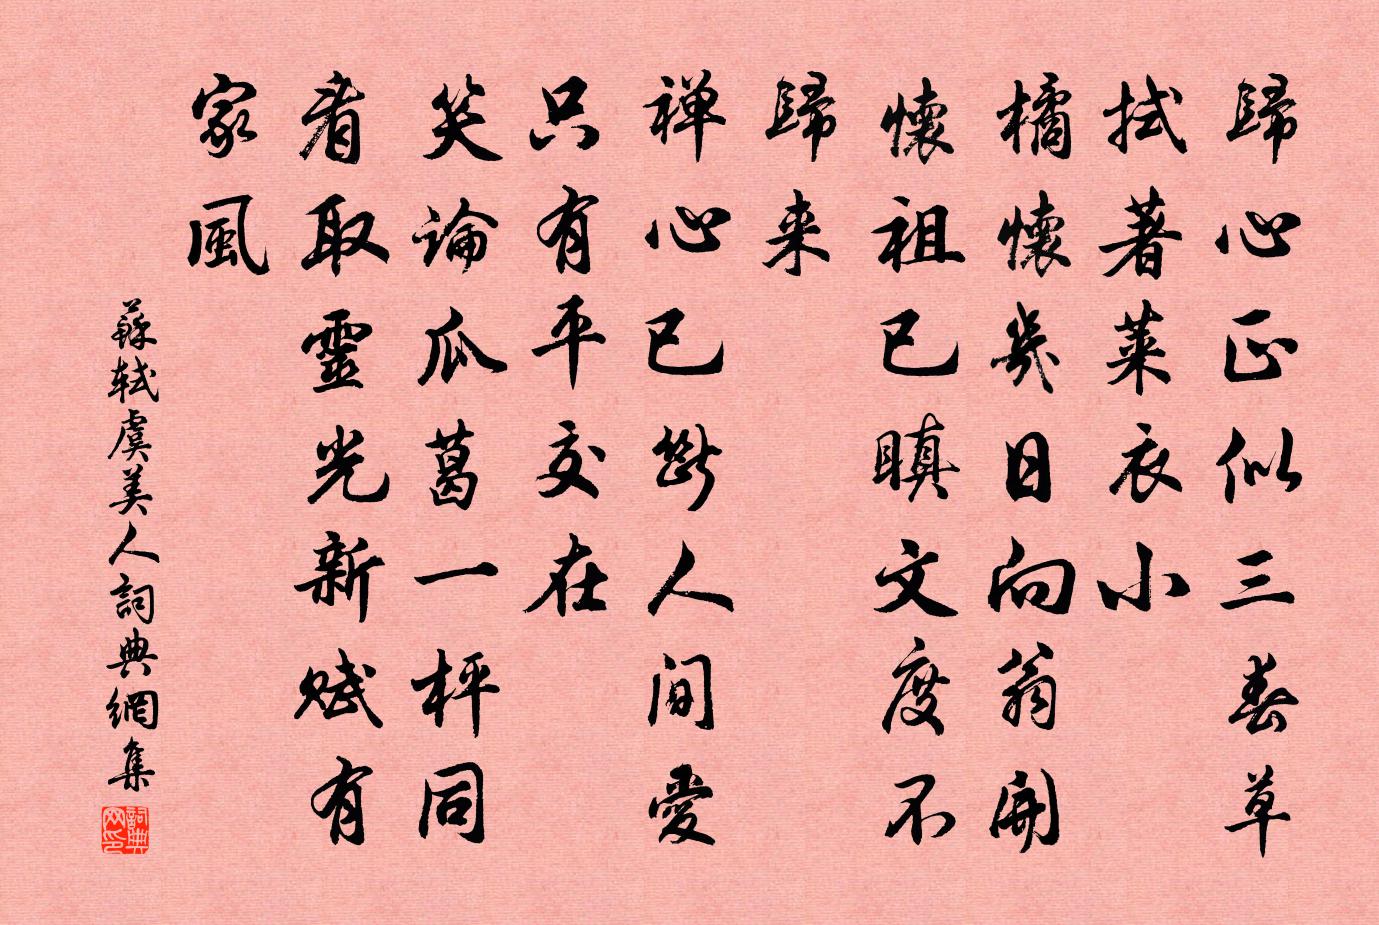 歸心正似三春草
拭著萊衣小
橘懷幾日向翁開
懷祖已瞋文度不
歸来
禪心已斷人間愛
只有平交在
笑論瓜葛一枰同
看取靈光新賦有
家風
蘇軾虞美人詞典網集
詞典
网印